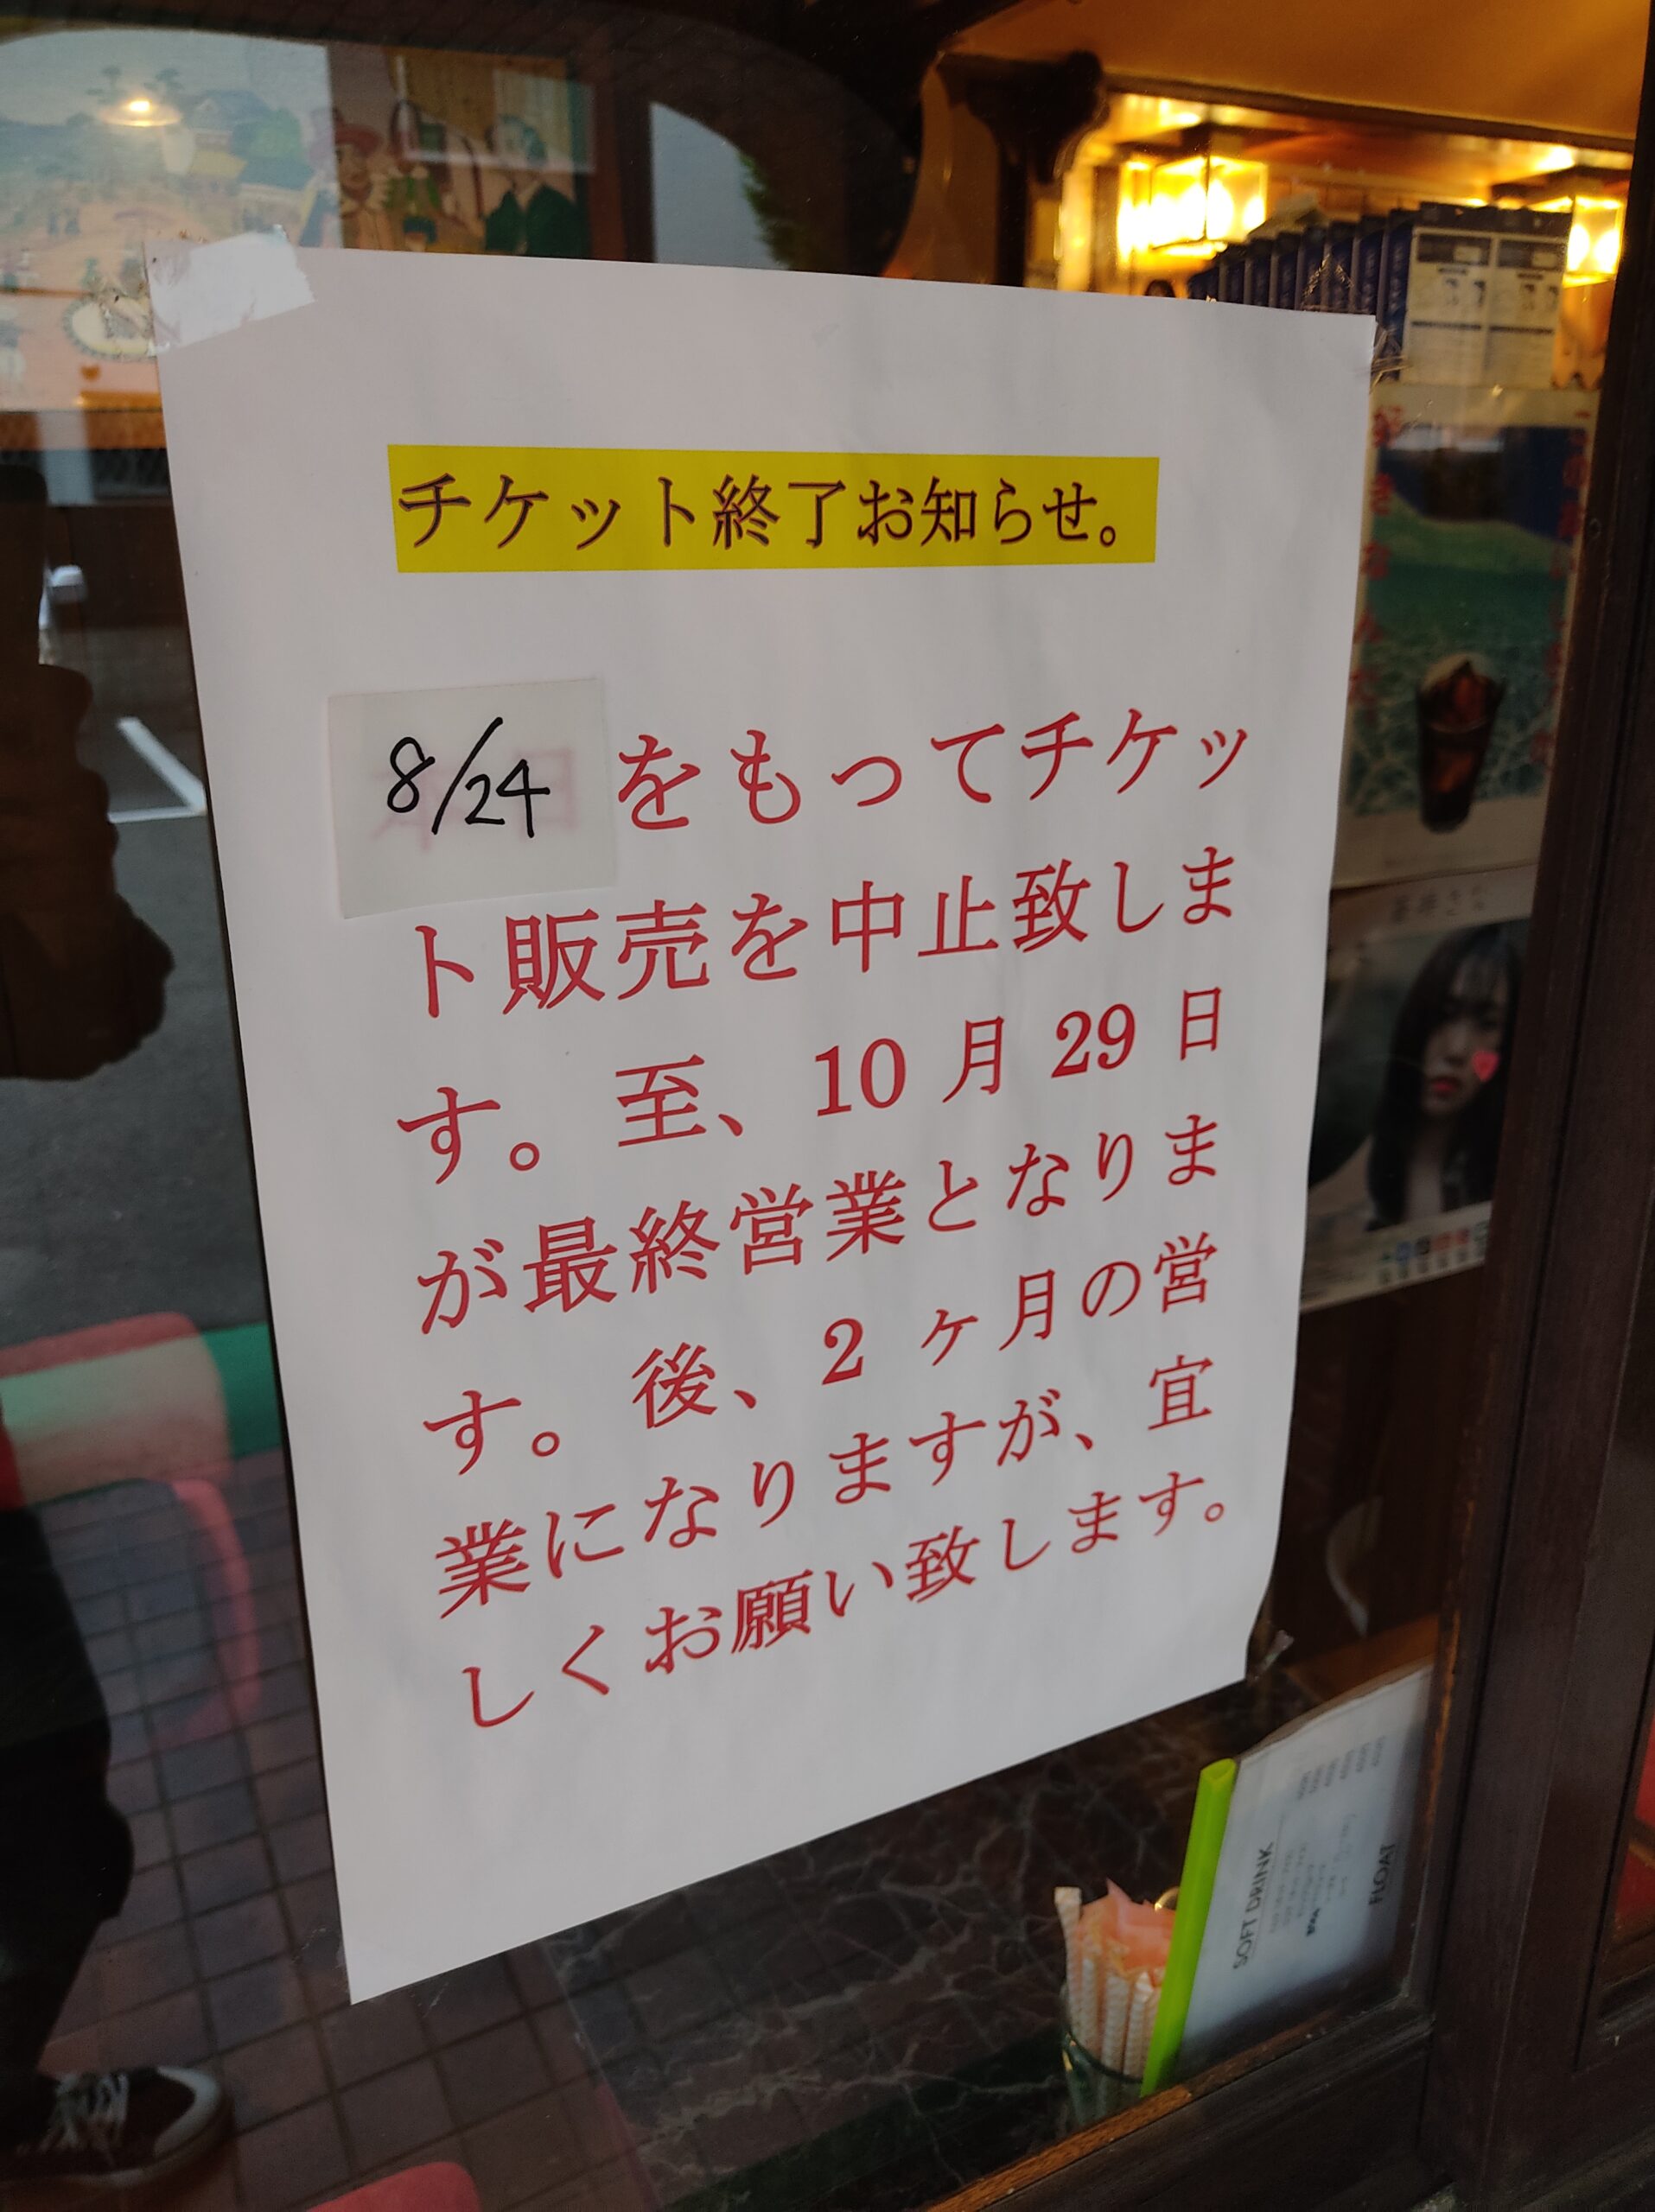 チケット終了お知らせ。
8/24 をもってチケッ
ト販売を中止致しま
す。至、10 月 29 日
が最終営業となりま
す。後、2 ヶ月の営
業になりますが、宜
しくお願い致します。
SOFT DRINK
FLOAT